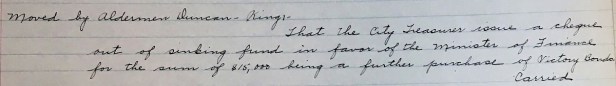 Moved by Aldermen Duncan - King -
That the City Treasurer issue a cheque
out of sinking fund in favor of the Minister of Finance
for the sum of $15,000 being a further purchase of Victory Bonds
Carried